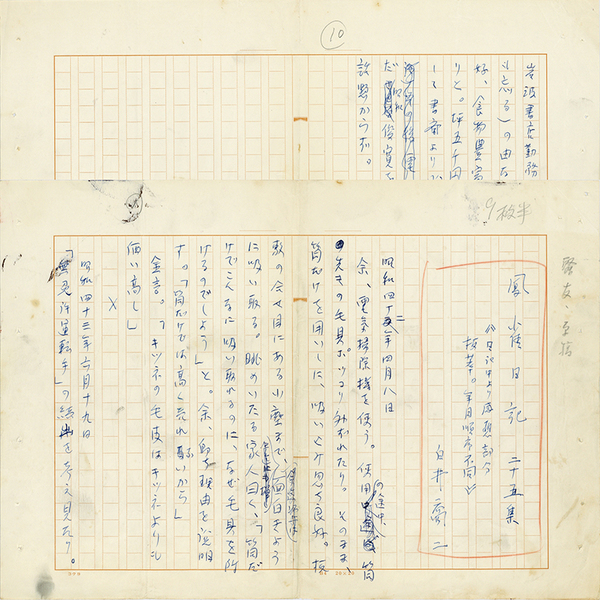 10
岩波書店勤務
忘る)の由な
好、食物豊富
りと。坪五千円
る書斎より
だ 俊寛を
からず。
9枚半
日記 二十五集
《日記中より感想部分
抜萃。年月順序不同》
白井喬二
昭和四十二年四月八日
余、電気掃除機を使う。使用の途中、筒
先きの毛具ポッコリ れたり。そのまま、
筒だけを用いしに、吸いこみ忽ち良好。板
敷の合せ目にある小塵まで、面白きよう
に吸い取る。眺めいたる家人曰く、「筒だ
けでこんなに吸い取れるのに、なぜ毛具を附
けるのでしょう」と。余、即ち理由を説明
す。「筒だけでは高く売れないから」
金言。「キツネの毛皮はキツネよりも
価い高し」
×
昭和四十三年六月十九日
「無免許運転手」の結末を考え見たり。